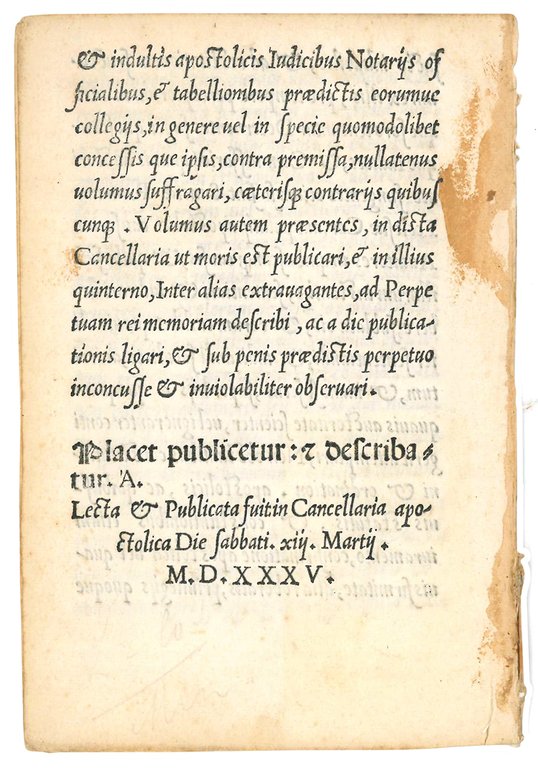 & indultis apostolicis Iudicibus Notarijs of
ficialibus, & tabellionibus prædictis eorumue
collegijs, in genere uel in specie quomodolibet
concessis que ipsis, contra premissa, nullatenus
uolumus suffragari, cæterisq; contrarijs quibus
cunq; . Volumus autem præsentes, in dicta
Cancellaria ut moris est publicari, & in illius
quinterno, Inter alias extrauagantes, ad Perpe
tuam rei memoriam describi, ac a dic publica-
tionis ligari, & sub penis prædictis perpetuo
inconcusse & inuiolabiliter obseruari.
Placet publicetur: ⁊ describa⸗
tur. A.
Lecta & Publicata fuit in Cancellaria apo-
stolica Die sabbati. xij. Martij.
M. D. XXXV.